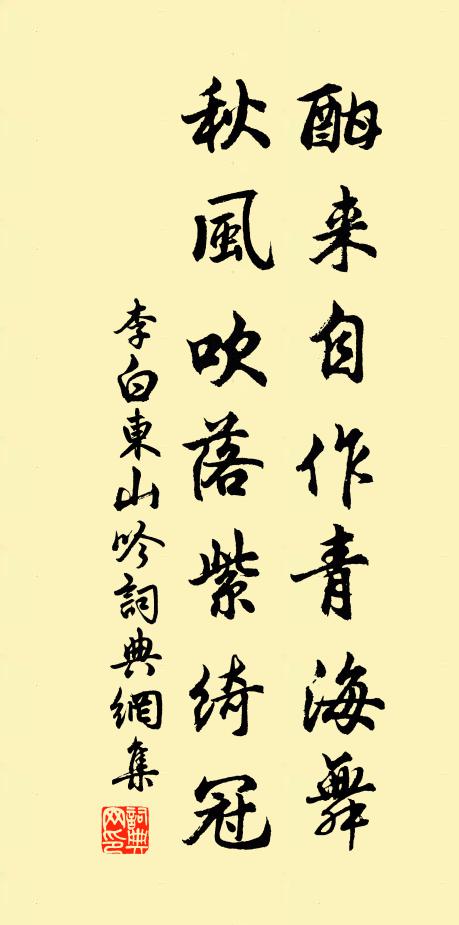 酣来自作青海舞
秋風吹落紫綺冠
李白東山吟詞典網集
詞典網印